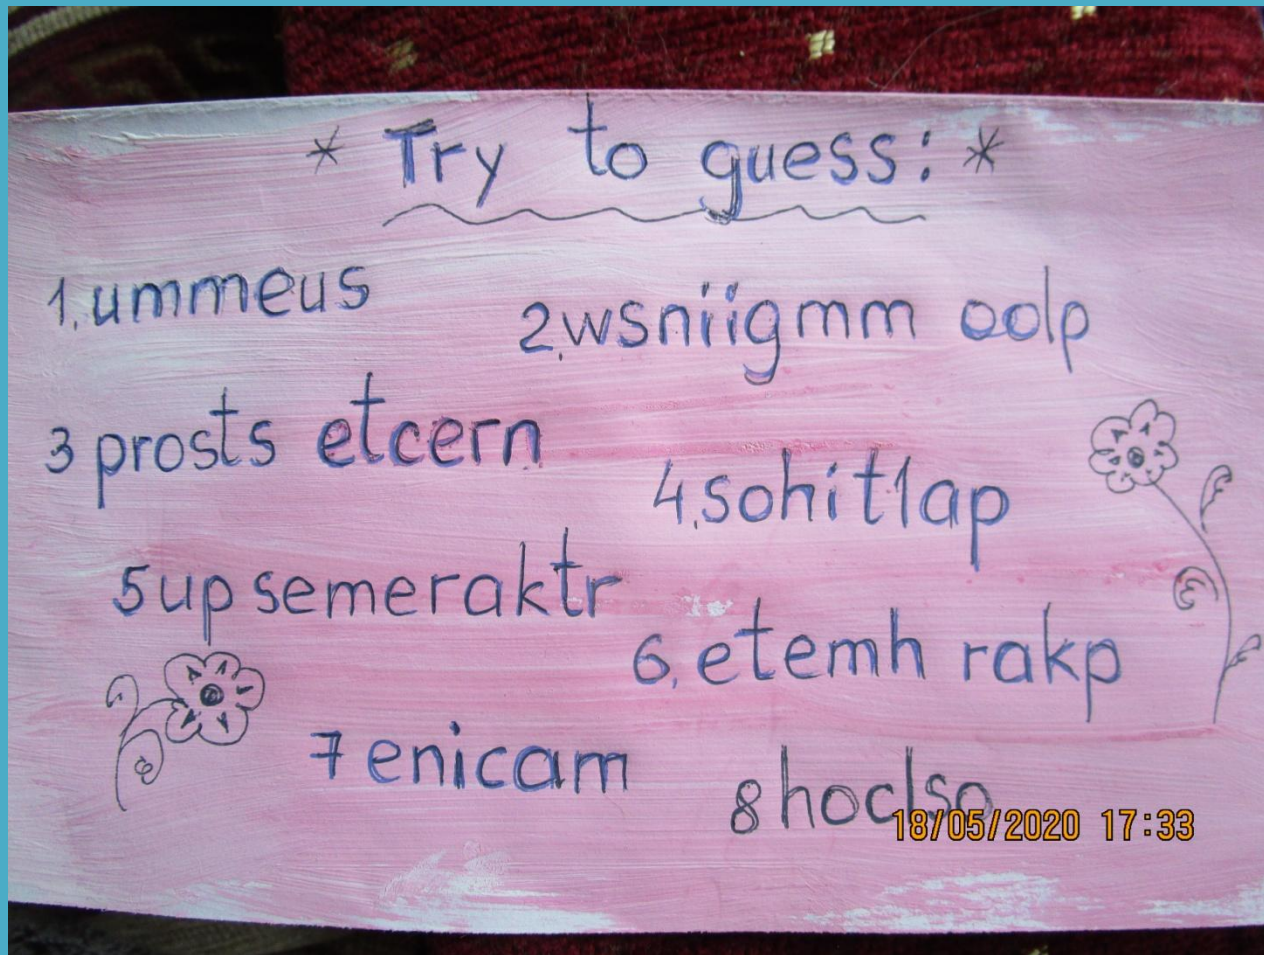 * Try to guess: *
1. ummeus
2. wsniigmm oolp
3 prosts etcern
4. sohitlap
5 upsemeraktr
6. etemh rakp
7 enicam
8 hoclso
18/05/2020 17:33